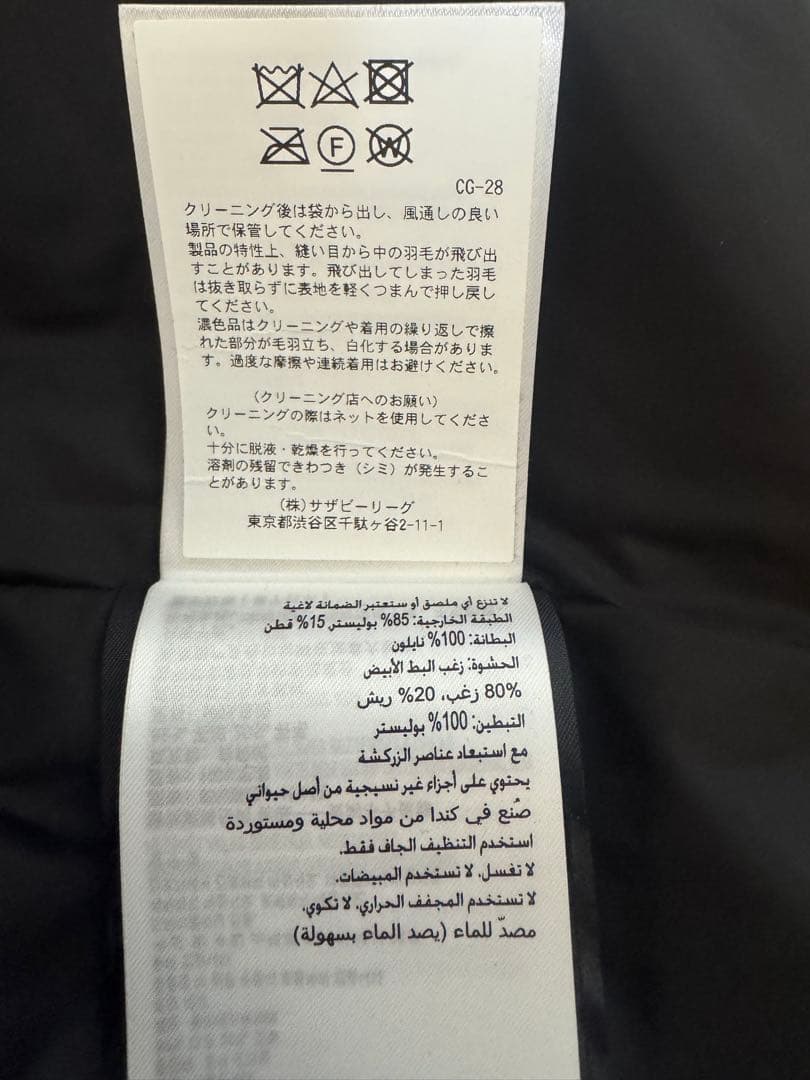 F
W
CG-28
クリーニング後は袋から出し、風通しの良い
場所で保管してください。
製品の特性上、縫い目から中の羽毛が飛び出
すことがあります。飛び出してしまった羽毛
は抜き取らずに表地を軽くつまんで押し戻し
てください。
濃色品はクリーニングや着用の繰り返しで擦
れた部分が毛羽立ち、白化する場合がありま
す。過度な摩擦や連続着用はお避けください。
(クリーニング店へのお願い)
クリーニングの際はネットを使用してくださ
い。
十分に脱液・乾燥を行ってください。
溶剤の残留できわつき（シミ）が発生するこ
とがあります。
(株)サザビーリーグ
東京都渋谷区千駄ヶ谷2-11-1
لا تنزع أي ملصق أو ستعتبر الضمانة لاغية
الطبقة الخارجية: 85% بوليستر، 15% قطن
البطانة: 100% نايلون
الحشوة: زغب البط الأبيض
80% زغب، 20% ريش
التبطين: 100% بوليستر
مع استبعاد عناصر الزركشة
يحتوي على أجزاء غير نسيجية من أصل حيواني
صُنع في كندا من مواد محلية ومستوردة
استخدم التنظيف الجاف فقط.
لا تغسل. لا تستخدم المبيضات.
لا تستخدم المجفف الحراري. لا تكوي.
مصدّ للماء (يصد الماء بسهولة)